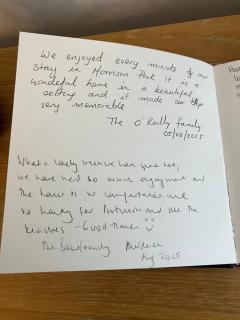 We enjoyed every minute of our
stay in Morrison Park it is a
wonderful home in a beautiful
setting and it made our trip
very memorable
The O'Reilly family
05/08/2025
What a lovely you have here,
we have had so much enjoyment and
the house is so comfortable and
so handy for Portrush and all the
beaches. - Good Times
The family,
Aug 2025
Ha